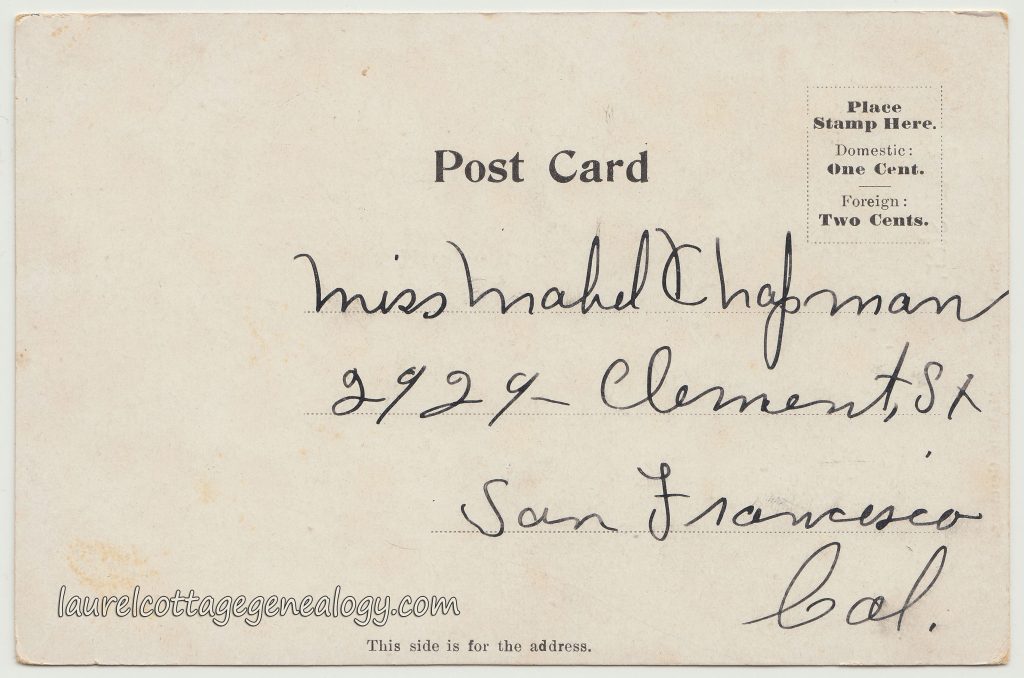 Post Card
Place
Stamp Here.
Domestic:
One Cent.
Foreign:
Two Cents.
Miss Mabel Chapman
2929 - Clement, St
San Francisco
Cal.
laurelcottagegenealogy.com
This side is for the address.